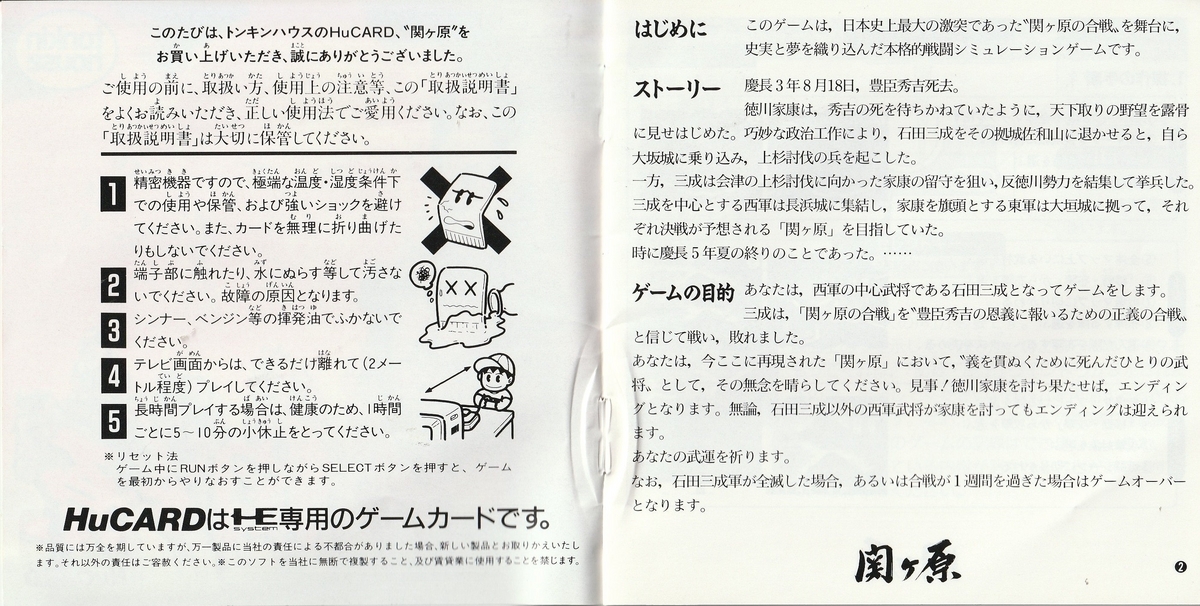 このたびは、トンキンハウスのHuCARD、〝関ヶ原〟を
お買い上げいただき、誠にありがとうございました。
ご使用の前に、取扱い方、使用上の注意等、この「取扱説明書」
をよくお読みいただき、正しい使用法でご愛用ください。なお、この
「取扱説明書」は大切に保管してください。
1 精密機器ですので、極端な温度・湿度条件下
での使用や保管、および強いショックを避け
てください。また、カードを無理に折り曲げた
りもしないでください。
2 端子部に触れたり、水にぬらす等して汚さな
いでください。故障の原因となります。
3 シンナー、ベンジン等の揮発油でふかないで
ください。
4 テレビ画面からは、できるだけ離れて(2メー
トル程度)プレイしてください。
5 長時間プレイする場合は、健康のため、1時間
ごとに5〜10分の小休止をとってください。
※リセット法
ゲーム中にRUNボタンを押しながらSELECTボタンを押すと、ゲーム
を最初からやりなおすことができます。
HuCARDはHE SYSTEM専用のゲームカードです。
※品質には万全を期していますが、万一製品に当社の責任による不都合がありました場合、新しい製品とお取りかえいたし
ます。それ以外の責任はご容赦ください。※このソフトを当社に無断で複製すること、及び賃貸業に使用することを禁じます。
はじめに このゲームは，日本史上最大の激突であった〝関ヶ原の合戦〟を舞台に，
史実と夢を織り込んだ本格的戦闘シミュレーションゲームです。
ストーリー 慶長3年8月18日，豊臣秀吉死去。
徳川家康は，秀吉の死を待ちかねていたように，天下取りの野望を露骨
に見せはじめた。巧妙な政治工作により，石田三成をその拠城佐和山に退かせると，自ら
大坂城に乗り込み，上杉討伐の兵を起こした。
一方，三成は会津の上杉討伐に向かった家康の留守を狙い，反徳川勢力を結集して挙兵した。
三成を中心とする西軍は長浜城に集結し，家康を旗頭とする東軍は大垣城に拠って，それ
ぞれ決戦が予想される「関ヶ原」を目指していた。
時に慶長5年夏の終りのことであった。……
ゲームの目的 あなたは，西軍の中心武将である石田三成となってゲームをします。
三成は，「関ヶ原の合戦」を〝豊臣秀吉の恩義に報いるための正義の合戦〟
と信じて戦い，敗れました。
あなたは，今ここに再現された「関ヶ原」において，〝義を貫ぬくために死んだひとりの武
将〟として，その無念を晴らしてください。見事！徳川家康を討ち果たせば，エンディン
グとなります。無論，石田三成以外の西軍武将が家康を討ってもエンディングは迎えられ
ます。
あなたの武運を祈ります。
なお，石田三成軍が全滅した場合，あるいは合戦が1週間を過ぎた場合はゲームオーバー
となります。
関ヶ原
2